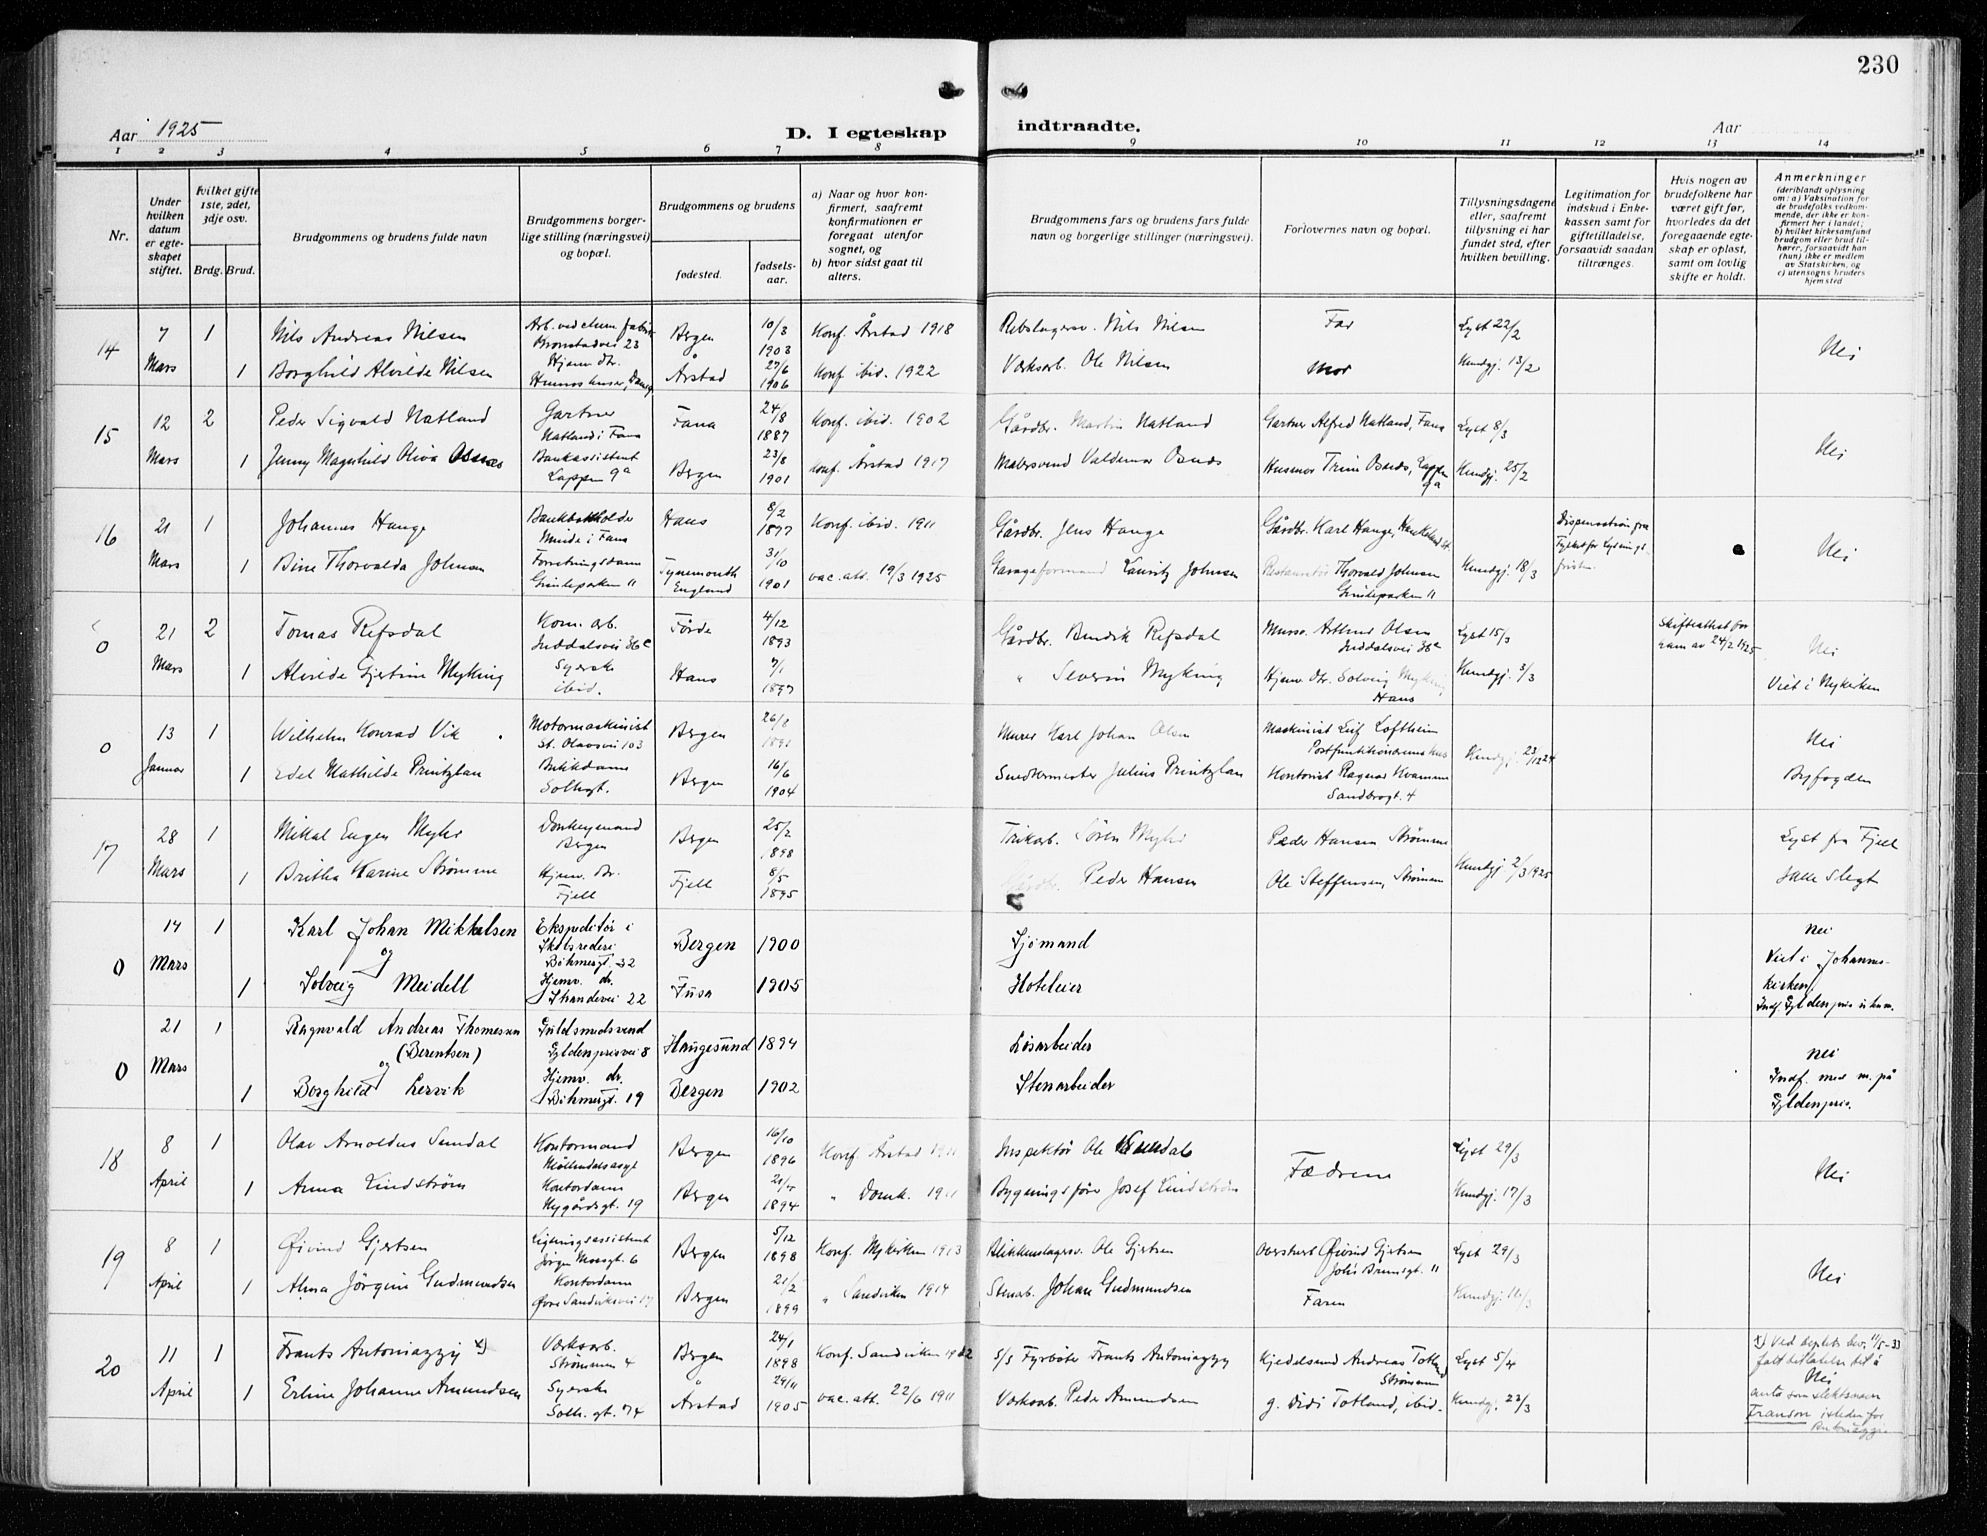 230
Aar 1925
D. I egteskap indtraadte.
Aar
1 2 3 4 5 6 7 8 9 10 11 12 13 14
Nr.
Under hvilken datum er egteskapet stiftet.
Hvilket gifte 1ste, 2det, 3dje osv.
Brdg. Brud.
Brudgommens og brudens fulde navn
Brudgommens borgerlige stilling (næringsvei) og bopæl.
Brudgommens og brudens
fødested.
fødselsaar.
a) Naar og hvor konfirmert, saafremt konfirmationen er foregaat utenfor sognet, og
b) hvor sidst gaat til alters.
Brudgommens fars og brudens fars fulde navn og borgerlige stillinger (næringsvei).
Forlovernes navn og bopæl.
Tillysningsdagene eller, saafremt tillysning ei har fundet sted, efter hvilken bevilling.
Legitimation for indskud i Enkekassen samt for giftetilladelse, forsaavidt saadan tiltrænges.
Hvis nogen av brudefolkene har været gift før, hvorledes da det foregaaende egteskap er opløst, samt om lovlig skifte er holdt.
Anmerkninger
(deriblandt oplysning om: a) Vaksination for de brudefolks vedkommende, der ikke er konfirmert her i landet, b) hvilket kirkesamfund brudgom eller brud tilhører, forsaavidt han (hun) ikke er medlem av Statskirken, og c) utensogns bruders hjemsted
14 7 Mars 1 Nils Andreas Nilsen Bergen 10/3 1903 Konf. Årstad 1918 Nils Nilsen Far Lyst 22/2 Nei
1 Borghild Alvilde Nilsen Hjemv. dtr. Årstad 27/6 1906 Konf. ibid. 1922 Værksarb. Ole Nilsen Mor Kundgj. 13/2
15 12 Mars 2 Peder Sigvald Natland Gartner Natland i Fana Fana 24/8 1887 Konf. ibid. 1902 Gårdbr. Martin Natland Gartner Alfred Natland, Fana Lyst 8/3 Nei
1 Jenny Magnhild Oliva Osnæs Bankassistent Lappen 9a Bergen 23/8 1901 Konf. Årstad 1917 Malersvend Valdemar Osnes Husmor Trine Osnes, Lappen 9a Kundgj. 25/2
16 21 Mars 1 Johannes Hauge Minde i Fana Haus 8/2 1877 Konf. ibid. 1911 Gårdbr. Jens Hauge Gårdbr. Karl Hauge, Haukeland st. Dispensation fra Fylket for Lysnings fristen. Nei
1 Bine Thorvalda Johnsen Forretningsdame Tynemouth England 31/10 1901 vac. att. 19/3 1925 Garageformand Lauritz Johnsen Restauratør Thorvald Johnsen Kundgj. 18/3
0 21 Mars 2 Tomas Refsdal Kom. arb. Inddalsvei 36c Førde 4/12 1893 Gårdbr. Bendik Refsdal Murer Arthur Olsen Inddalsvei 36c Lyst 15/3 Skifteattest for ham av 24/2 1925 Nei
1 Alvilde Gjertine Myking Syerske ibid. Haus 7/1 1897 " Severin Myking Hjemv. dtr. Solveig Myking Haus Kundgj. 3/3 Viet i Nykirken
0 13 Januar 1 Wilhelm Konrad Vik Motormaskinist St. Olavsvei 103 Bergen 26/8 1891 Murer Karl Johan Olsen Maskinist Leif Loftheim Kundgj. 23/12 24 Nei
1 Edel Mathilde Printzlau Butikdame Solhgt. Bergen 16/6 1904 Snedkermester Julius Printzlau Kontorist Ragnar Kvamme Sandbrogt. 4 Byfogden
17 28 Mars 1 Mikal Eugen Myhr Donkeymand Bergen Bergen 25/2 1898 Søren Myhr Peder Hansen Strømme Kundgj. 2/3 1925 Lyst fra Fjell
1 Britha Karine Strømme Hjemv. dtr. Fjell Fjell 8/5 1895 Gårdbr. Peder Hansen Ole Steffensen, Strømme Ikke Slegt
0 14 Mars 1 Karl Johan Mikkelsen Ekspeditør i Skolsrederi Böhmergt. 32 Bergen 1900 Sjømand nei
og
1 Solveig Meidell Hjemv. dr. Strandevei 22 Fusa 1905 Hoteleier Viet i Johannes-kirken, Indf. Gyldenpris u. kom.
0 21 Mars 1 Ragnvald Andreas Thomessen (Berentsen) Guldsmedsvend Gyldenprisvei 8 Haugesund 1894 Løsarbeider nei
og
1 Borghild Lervik Hjemv. dr. Böhmergt. 19 Bergen 1902 Stenarbeider Indf. med m. på Gyldenpris.
18 8 April 1 Olav Arnoldus Sundal Kontormand Møllendalsvgt Bergen 16/10 1896 Konf. Årstad 1911 Inspektør Ole Sundal Fædrene Lyst 29/3 Nei
1 Anna Lindstrøm Kontordame Nygårdsgt. 19 Bergen 1894 " Domk. 1911 Bygningsfører Josef Lindstrøm Kundgj. 17/3
19 8 April 1 Øivind Gjertsen Ligningsassistent Jørgen Moesgt. 6 Bergen 5/12 1898 Konf. Nykirken 1913 Blikkenslagersv. Ole Gjertsen Øivind Gjertsen Johs Brunsgt. 11 Lyst 29/3 Nei
1 Alma Jørgine Gudmundsen Kontordame Øvre Sandviksvei 17 Bergen 21/2 1899 " Sandviken 1914 Stenarb. Johan Gudmundsen Faren
20 11 April 1 Frants Antoniazzy x) Værksarb. Strømmen 4 Bergen 24/1 1898 Konf. Sandviken 1912 S/S Fyrbøter Frants Antoniazzy Kjedelsmed Andreas Totland Strømmen Lyst 5/4 Nei
1 Erline Johanne Amundsen Syerske Solh. gt. 74 Årstad 24/11 1905 vac. att. 22/6 1911 Værksarb. Peder Amundsen g. Didi Totland, ibid. Kundgj. 23/3
x) Ved deptets bev. 11/5-33 tillatelse til å anta som slektsnavn Franson isteden for Antoniazzy